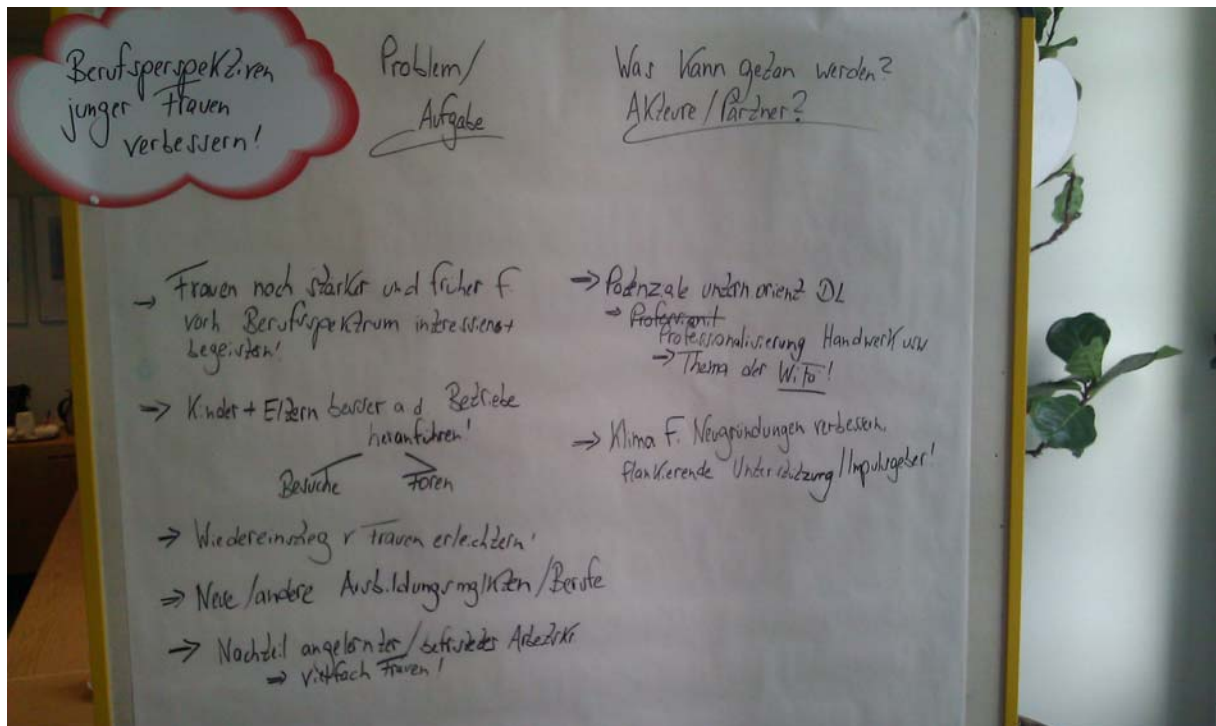 Berufsperspektiven
junger Frauen
verbessern!
Problem/
Aufgabe
Was kann getan werden?
Akteure/Partner?
→ Frauen noch stärker und früher f.
vorh Berufsspektrum interessieren +
begeistern!
→ Kinder + Eltern besser a d Betriebe
heranführen!
Besuche Foren
→ Wiedereinstieg v Frauen erleichtern!
→ Neue/andere Ausbildungsmglkten/Berufe
→ Nachteil angelernter/befristeter Arbeitskr
⇒ vielfach Frauen!
→ Potenziale untern.orient DL
Professionalisierung Handwerk usw
→ Thema der WiFö!
→ Klima f. Neugründungen verbessern,
flankierende Unterstützung/Impulsgeber!